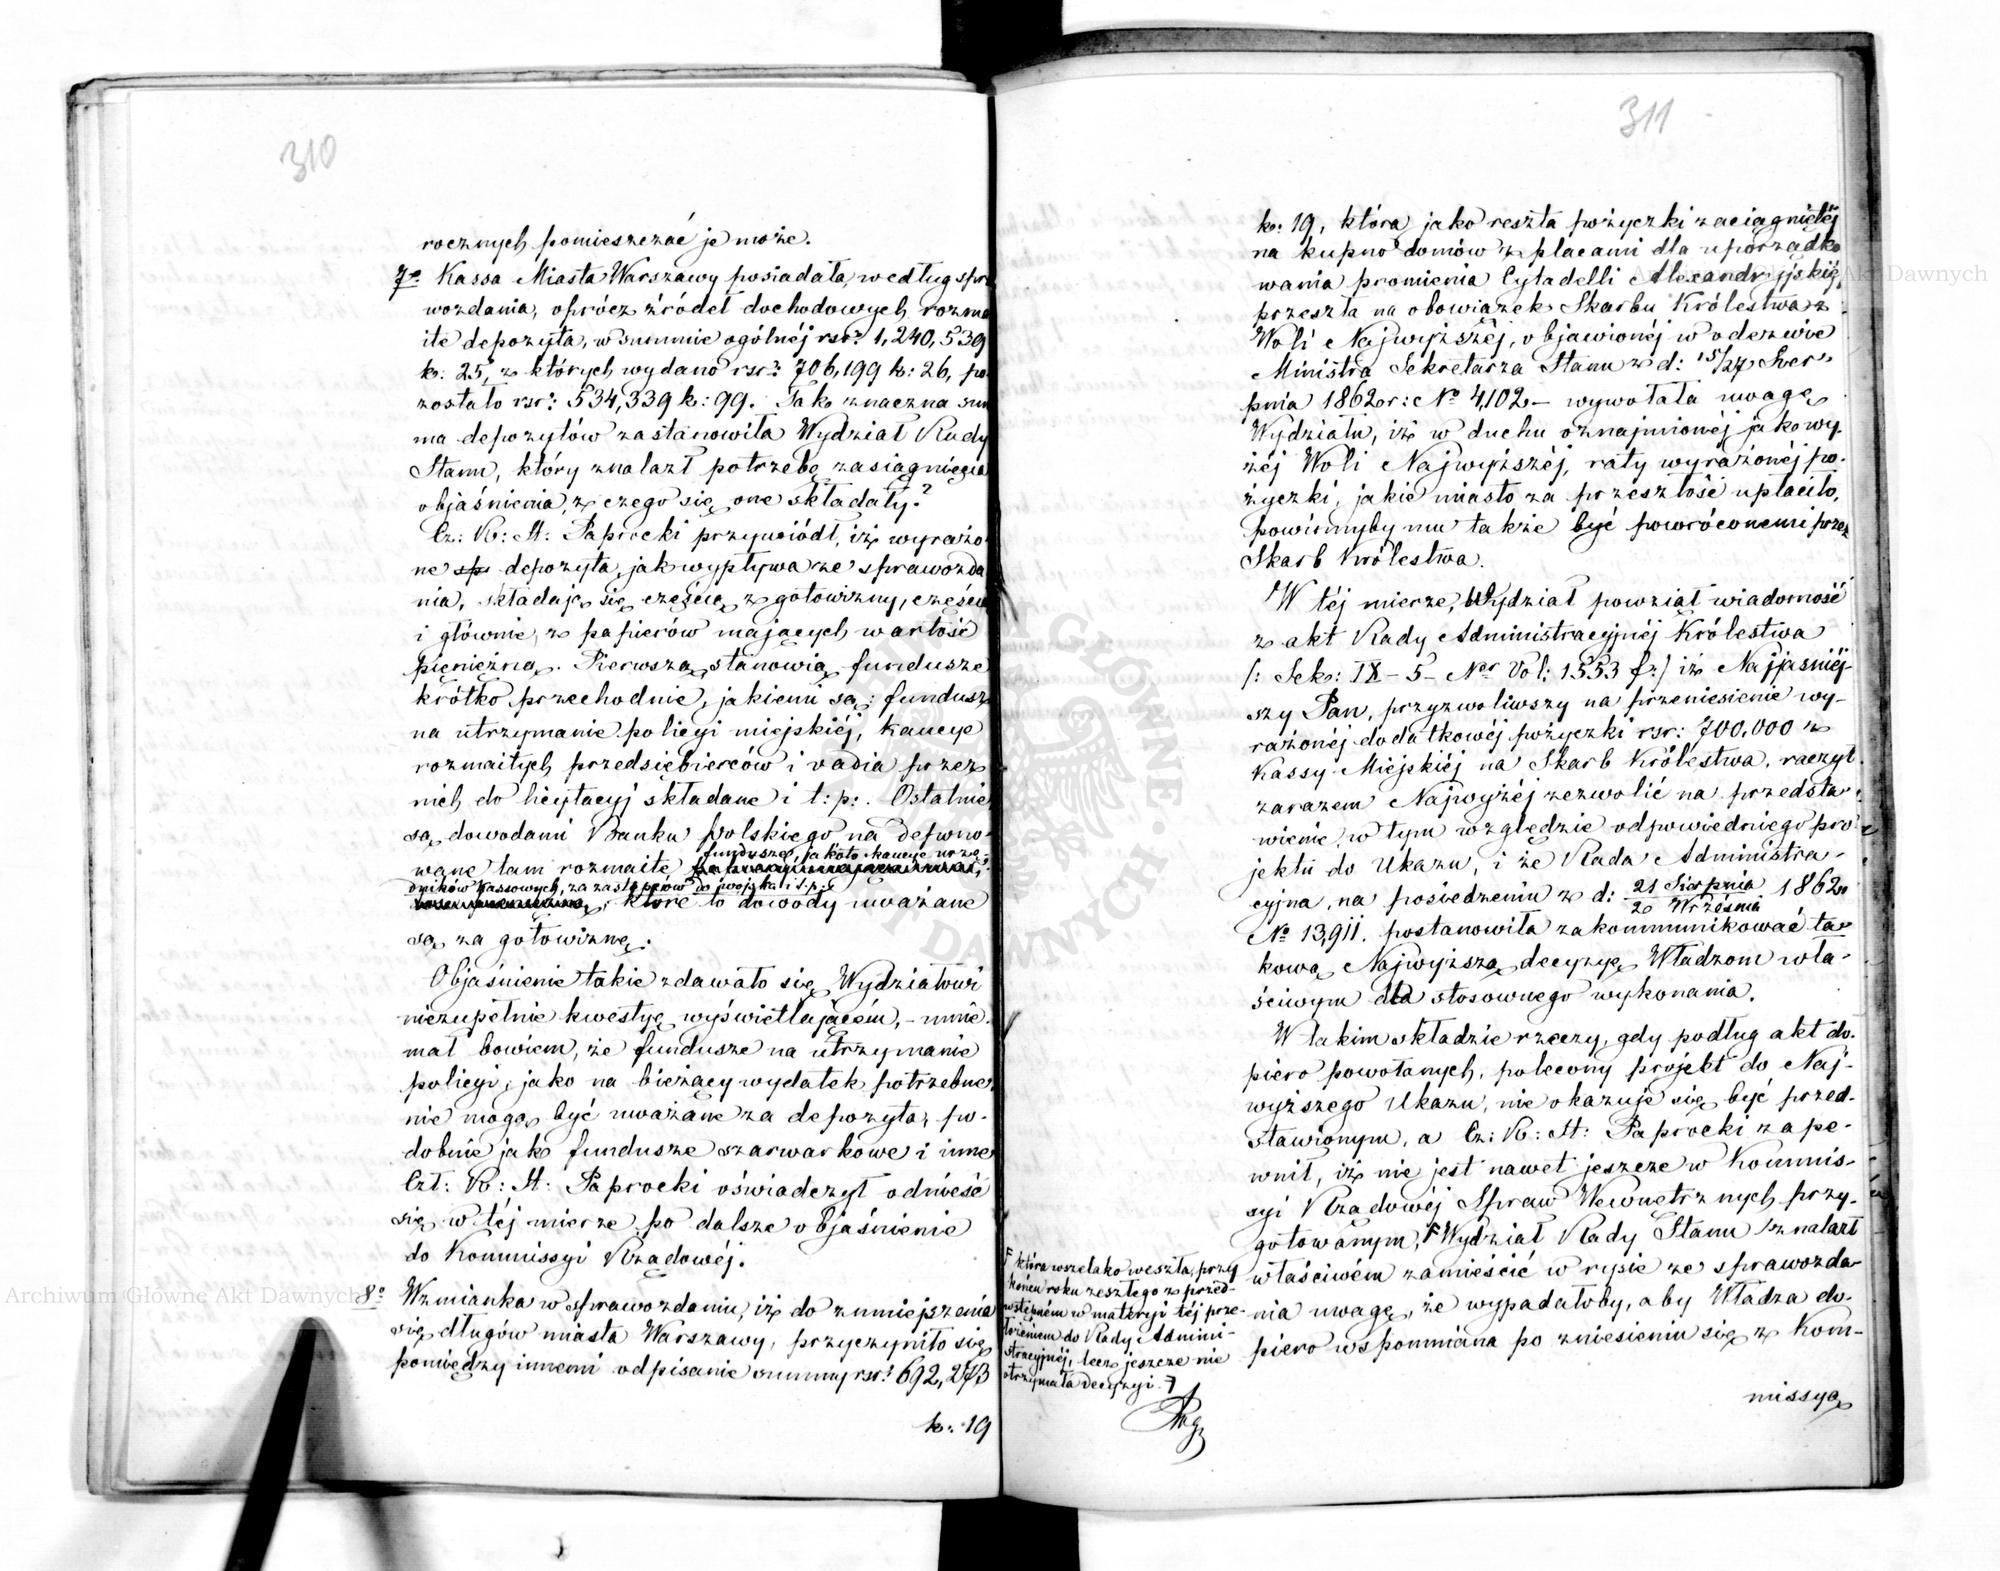 310
rocznych pomieszczać je może.
7o Kassa Miasta Warszawy posiadała, według spra
wozdania, oprócz źródeł dochodowych, rozma
ite depozyta, w summie ogólnéj rsr: 1,240,539
k: 25, z których wydano rsr: 706,199 k: 26, po
zostało rsr: 534,339 k: 99. Tak znaczna sum
ma depozytów zastanowiła Wydział Rady
Stanu, który znalazł potrzebę zasiągnięcia
objaśnienia, z czego się one składały?
Cz: R: St: Paprocki przywiódł, iż wyrażo
ne depozyta, jak wypływa ze sprawozda
nia, składają się częścią z gotowizny, częścią
i głównie, z papierów mających wartość
pieniężną. Pierwszą stanowią fundusze
krótko przechodnie, jakiemi są: fundusz
na utrzymanie policyi miejskiéj, kaucye
rozmaitych przedsiębierców i vadia przez
nich do licytacyj składane i t: p:. Ostatnie
są dowodami Banku Polskiego na depono-
wane tam rozmaite fundusze, jakoto kaucye urzę-
dników kassowych, za zastępców do wojska i t. p.
, które to dowody uważane
są za gotowiznę.
Objaśnienie takie zdawało się Wydziałowi
niezupełnie kwestyę wyświetlającém, – mnie-
mał bowiem, że fundusze na utrzymanie
policyi, jako na bieżący wydatek potrzebne,
nie mogą być uważane za depozyta, po-
dobnie jak fundusze szarwarkowe i inne
Czł: R: St: Paprocki oświadczył odnieść
się w téj mierze po dalsze objaśnienie
do Kommissyi Rządowéj.
8o Wzmianka w sprawozdaniu, iż do zmniejszenia
się długów miasta Warszawy, przyczyniło się
pomiędzy innemi odpisanie summy rsr: 692,273
k: 19
311
k: 19, która jako reszta pożyczki zaciągniętéj
na kupno domów z placami dla uporządko
wania promienia Cytadelli Alexandryjskiéj,
przeszła na obowiązek Skarbu Królestwa z
Woli Najwyższéj, objawionéj w odezwie
Ministra Sekretarza Stanu z d: 15/27 Sier-
pnia 1862 r: No 4,102 – wywołała uwagę
Wydziału, iż w duchu oznajmionéj jakowy-
żéj Woli Najwyższéj, raty wyrażonéj po-
życzki, jakie miasto za przeszłość upłaciło,
powinnyby mu także być powróconemi przez
Skarb Królestwa.
W téj mierze, Wydział powziął wiadomość
z akt Rady Administracyjnéj Królestwa
/: Sek: IX – 5 – Ner Vol: 1553 f:/ iż Najjaśniéj-
szy Pan, przyzwoliwszy na przeniesienie wy-
rażonéj dodatkowéj pożyczki rsr: 700,000 z
Kassy Miejskiéj na Skarb Królestwa, raczył
zarazem Najwyżéj zezwolić na przedsta-
wienie, w tym względzie odpowiedniego pro
jektu do Ukazu, i że Rada Administra-
cyjna, na posiedzeniu z d: 21 Sierpnia / 2 Września 1862
No 13,911. postanowiła zakommunikować ta-
kową Najwyższą decyzyę Władzom wła-
ściwym dla stosownego wykonania.
W takim składzie rzeczy, gdy podług akt do-
piero powołanych, polecony projekt do Naj-
wyższego Ukazu, nie okazuje się być przed-
stawionym, a Cz: R: St: Paprocki zape-
wnił, iż nie jest nawet jeszcze w Kommis-
syi Rządowéj Spraw Wewnętrznych przy-
gotowanym, F Wydział Rady Stanu znalazł
właściwém zamieścić w rysie ze sprawozda-
nia uwagę, że wypadałoby, aby Władza do-
piero wspomniana po zniesieniu się z Kom-
missyą
F która wszelako weszła, przy
końcu roku zeszłego z przed-
wstępném w materyi téj prze-
łożeniem do Rady Admini-
stracyjnéj, lecz jeszcze nie
otrzymała decyzyi. F